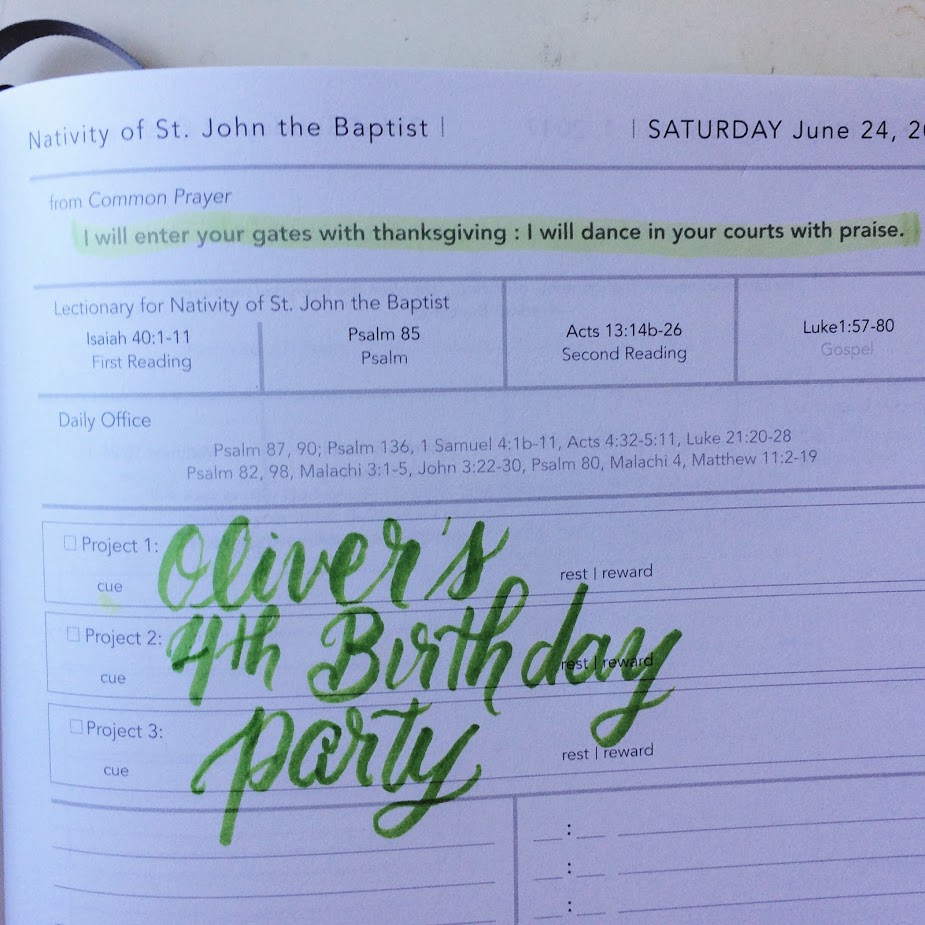 Nativity of St. John the Baptist | | SATURDAY June 24, 20
from Common Prayer
I will enter your gates with thanksgiving : I will dance in your courts with praise.
Lectionary for Nativity of St. John the Baptist
Isaiah 40:1-11 Psalm 85 Acts 13:14b-26 Luke1:57-80
First Reading Psalm Second Reading Gospel
Daily Office
Psalm 87, 90; Psalm 136, 1 Samuel 4:1b-11, Acts 4:32-5:11, Luke 21:20-28
Psalm 82, 98, Malachi 3:1-5, John 3:22-30, Psalm 80, Malachi 4, Matthew 11:2-19
Project 1: Oliver's
cue rest | reward
Project 2: 4th Birthday
cue rest | reward
Project 3: party
cue rest | reward
__:__
__:__
__:__